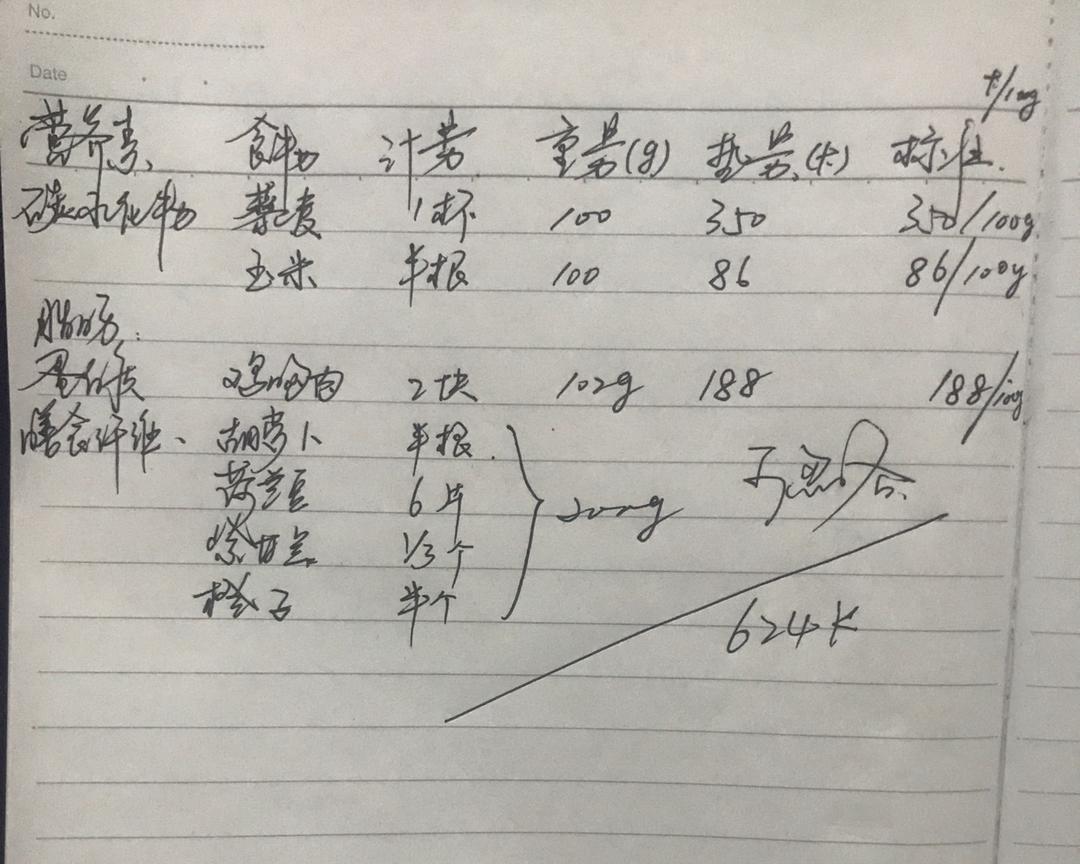 No.
Date
卡/100g
营养素 食物 计量 重量(g) 热量(卡) 标准
碳水化物 藜麦 1杯 100 350 350/100g
玉米 半根 100 86 86/100g
脂肪:
蛋白质 鸡胸肉 2块 102g 188 188/100g
膳食纤维、 胡萝卜 半根
荷兰豆 6片
紫甘兰 1/3个
橙子 半个
200g
可忽略
624卡